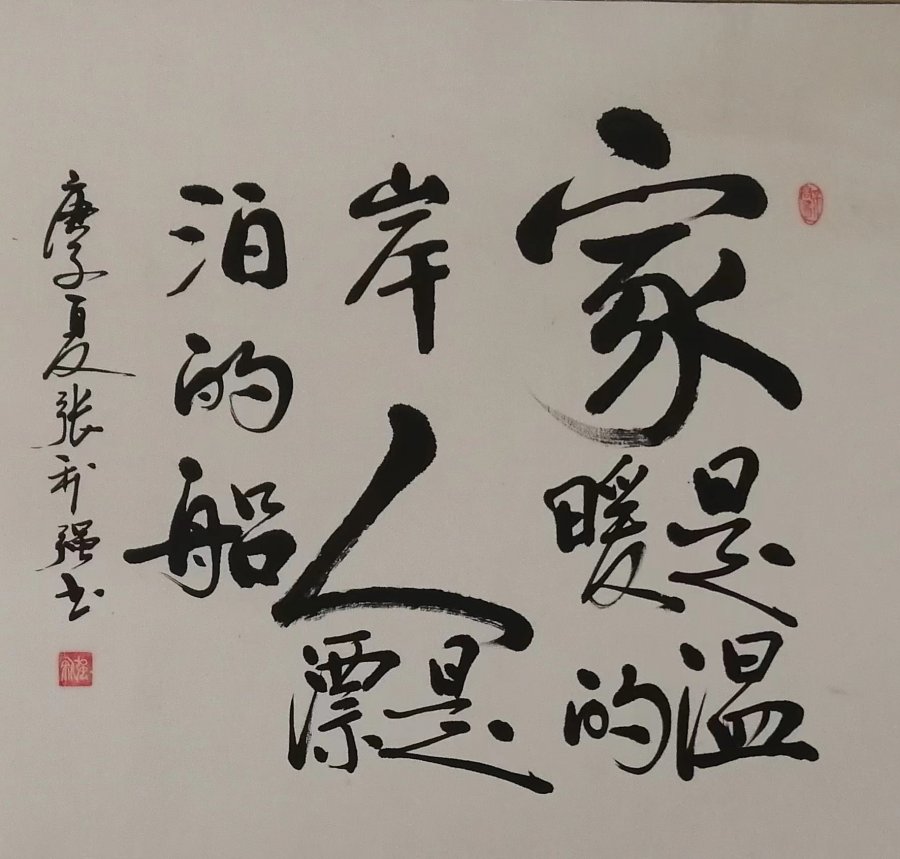 家是温暖的
岸人是漂
泊的船
庚子夏张利强书